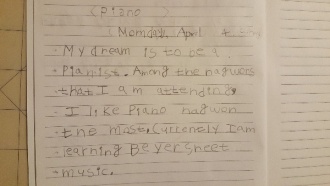 (Piano
(Monday, April 4
My dream is to be a
Pianist. Among the hagwons
that I am attending,
I like Piano hagwon
the most. Currenly I am
learning Beyer sheet
music.